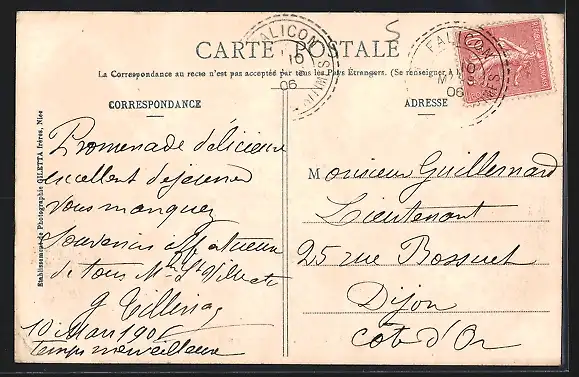 CARTE POSTALE
La Correspondance au recto n'est pas acceptée par tous les Pays Étrangers. (Se renseigner à
CORRESPONDANCE
ADRESSE
Etablissement de Photographie GILETTA frères, Nice
FALICON
10
06
FALICON
10
06
Promenade délicieuse
excellent dejeuner
Vous manquez
Souvenirs affectueux
de tous
10 Mars 1906
Temps merveilleux
Monsieur Guillemard
Lieutenant
25 rue Bossuet
Dijon
Côte d'Or